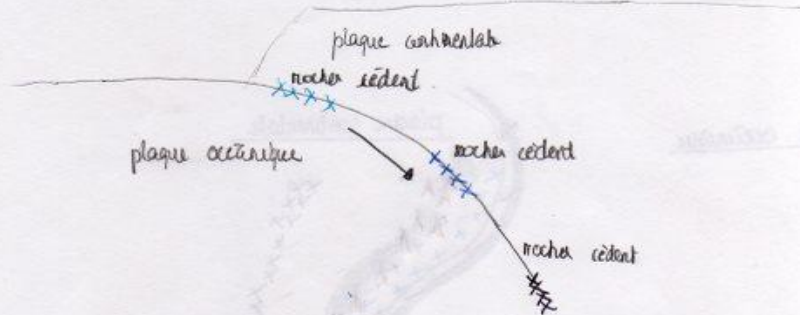 plaque continentale
rocher cèdent
plaque océanique
rocher cèdent
rocher cèdent